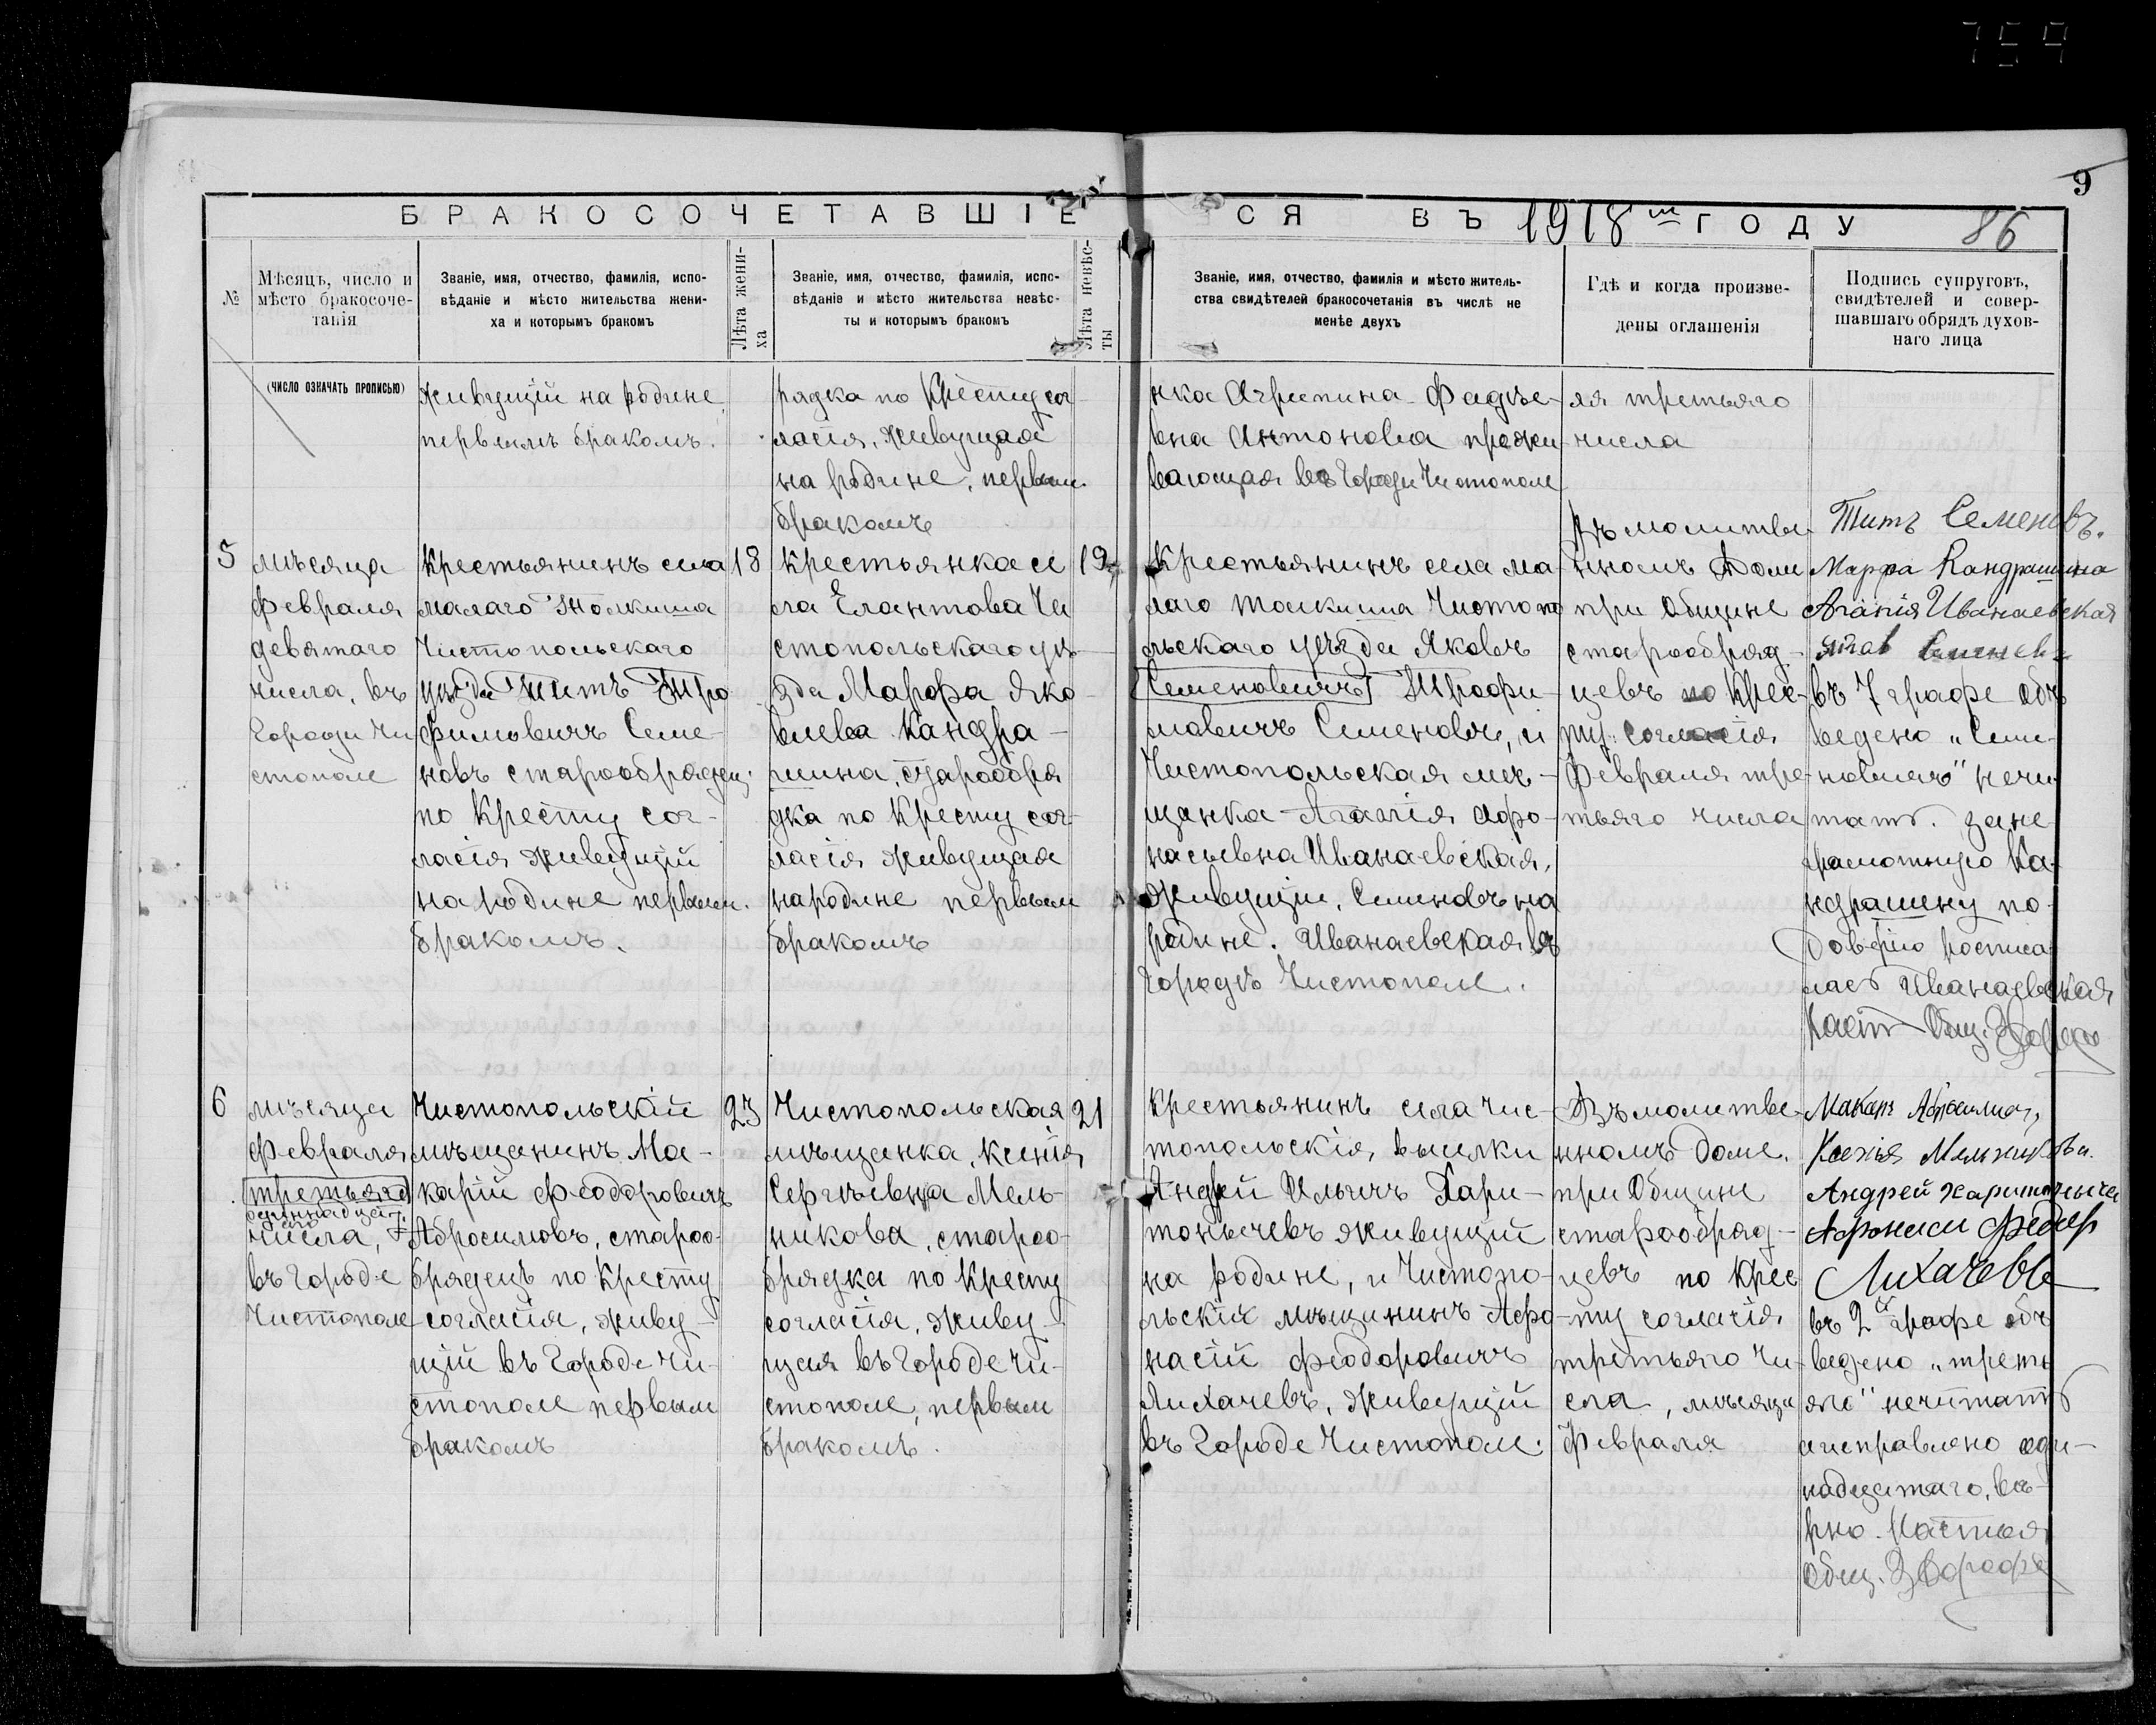 759
9
БРАКОСОЧЕТАВШІЕ
СЯ ВЪ 1918 ГОДУ
86
№
Мѣсяцъ, число и
мѣсто бракосоче-
танія
Званіе, имя, отчество, фамилія, испо-
вѣданіе и мѣсто жительства жени-
ха и которымъ бракомъ
Лѣта жени-
ха
Званіе, имя, отчество, фамилія, испо-
вѣданіе и мѣсто жительства невѣс-
ты и которымъ бракомъ
Лѣта невѣс-
ты
Званіе, имя, отчество, фамилія и мѣсто житель-
ства свидѣтелей бракосочетанія въ числѣ не
менѣе двухъ
Гдѣ и когда произве-
дены оглашенія
Подпись супруговъ,
свидѣтелей и совер-
шавшаго обрядъ духов-
наго лица
(ЧИСЛО ОЗНАЧАТЬ ПРОПИСЬЮ)
живущій на родине
первымъ бракомъ.
рядка по Кресту сог-
ласія, живущая
на родине, первым
бракомъ
нка Агрипина Фадѣе-
вна Антонова прожи-
вающая въ Городи Чистополе
ля третьяго
числа
5
мѣсяца
Февраля
девятаго
числа, въ
Городи Чи
стополе
Крестьянинъ села
малаго Толкиша
Чистопольскаго
уѣзда Титъ Тро
фимовичъ Семе-
новъ старообрядец
по Кресту сог-
ласія живущій
на родине первым
бракомъ.
18
Крестьянка се
ла Елантова Чи
стопольскаго уѣ-
зда Марфа Яко-
влева Кандра-
шина, старообря
дка по Кресту сог-
ласія живущая
народине первым
бракомъ
19
Крестьянинъ села ма
лаго толкиша Чистопо
льскаго уѣзда Яковъ
Семеновичъ Трофи-
мовичъ Семеновъ, и
Чистопольская мѣ-
щанка Агапія Афо-
насьевна Иванаевская,
Живущіи, Семеновъ на
родине. Иванаевская въ
Городѣ Чистополе.
Въ молитве
нномъ Доми
при Общине
старообряд-
цевъ по Крес-
ту согласія
Февраля тре-
тьяго числа
Титъ Семеновъ.
Марфа Кандрашина
Агапія Иванаевская
въ 7 графе обь
ведено „Семе-
новичъ" нечи
тать. за не
грамотную Ка-
ндрашину по
доверію росписа
лась Иванаевская
Наст. Общ.
6
мѣсяца
Февраля
третьяго
одиннадцат.
аго
числа,
въ Городе
Чистополе
Чистопольскій
мѣщанинъ Ма-
карій Феодоровичъ
Абросимовъ, староо-
брядецъ по Кресту
согласія, живу-
щій въ Городе Чи-
стополе первым
бракомъ
23
Чистопольская
мѣщанка, Ксенія
Сергѣевна Мель-
никова, староо-
брядка по Кресту
согласія, живу-
щая въ Городе Чи-
стополе, первым
бракомъ.
21
Крестьянинъ села Чис-
топольскія, выселки
Андрей Ильичъ Хари-
тонычевъ живущій
на родине, и Чистопо-
льскій мѣщининъ Афо
насій Феодоровичъ
Лихачевъ, живущій
въ Городе Чистополе.
Въ молитве
нномъ Доме.
при Общине
старообряд-
цевъ по Крес
ту согласія
третьяго чи
сла, мѣсяца
Февраля
Макаръ Абросимовъ
Ксенья Мельникова.
Андрей Харитонычев
Афонаси Федор
Лихачевъ
въ 2й графе обь
ведено „треть
яго" нечитать
а исправлено оди-
надцатаго, вѣ-
рно. Настоя
Общ.